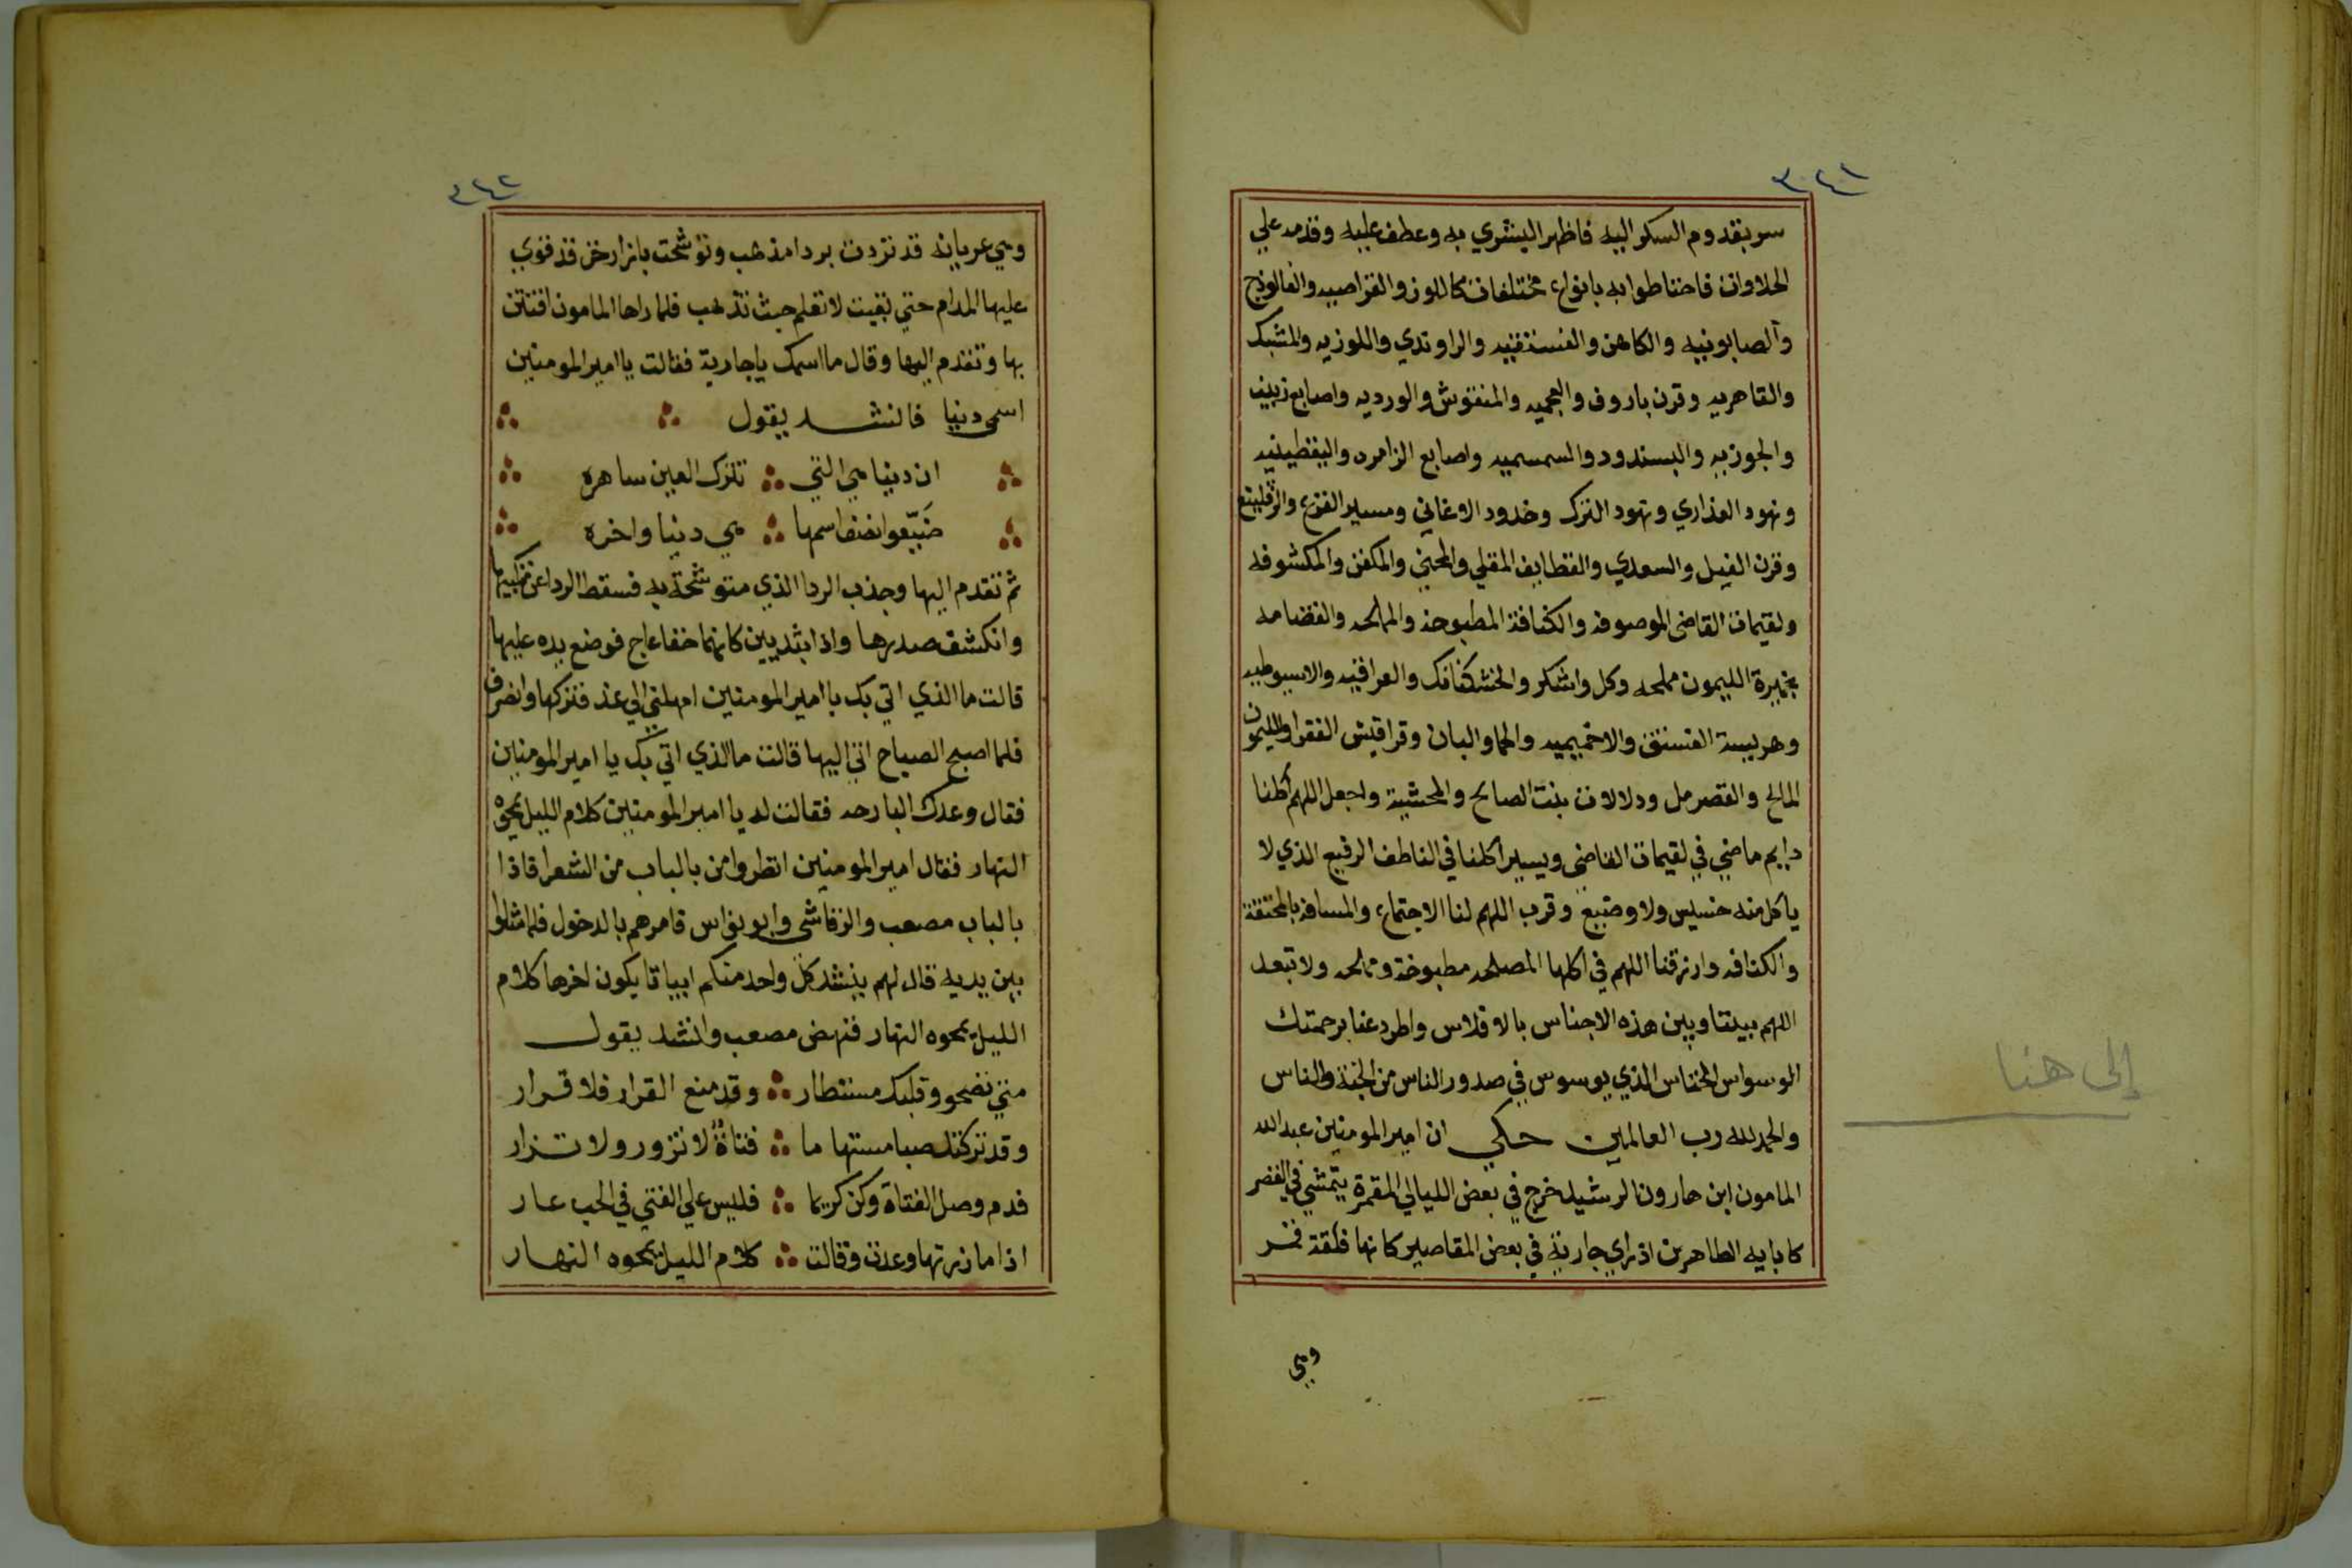 ٣٤١
سر بقدوم السكر اليه فاظهر اليشري به وعطف عليه وقدمه علي
الحلاوات فاحتاطوا به بانواع مختلفات كاللوز والقراصيه والفالوذج
والصابونيه والكاهن والفستقيه والراوندي واللوزيه والمشبك
والقاهريه وقرن باروف والعجميه والمنقوش والورديه واصابع زينب
والجوزيه والبسندود والسمسميه واصابع الزامره واليقطينيه
ونهود العذاري ونهود الترك وخدود الاغاني ومسير القرع
وقرن الفيل والسعدي والقطايف المقلي والمحني والمكفن والمكشوفه
ولقيمات القاضي الموصوفه والكنافة المطبوخه والمالحه والقضامه
بخميرة الليمون مملحه وكل واشكر والخشكنانك والعراقيه والاسيوطيه
وهريسة الفستق والاخميميه والحماو البان وقراقيش الفقرا والليمون
المالح والقصرمل ودلالات بنت الصالح والمحشية واجعل اللهم أكلنا
دايم ماضي في لقيمات القاضي ويسير اكلنا في الناطف الرفيع الذي لا
ياكل منه خسيس ولا وضيع وقرب اللهم لنا الاجتماع والمسافه بالمختقة
والكنافه وارزقنا اللهم في اكلها المصلحه مطبوخة ومملحه ولا تبعد
اللهم بيننا وبين هذه الاجناس بالافلاس واطرد عنا برحمتك
الوسواس الخناس الذي يوسوس في صدور الناس من الجنة والناس
والحمد لله رب العالمين حكي ان امير المومنين عبد الله
المامون ابن هارون الرشيد خرج في بعض الليالي المقمرة يتمشي في القصر
كابايه الطاهرين اذ راي جارية في بعض المقاصير كانها فلقة قمر
وهي
إلى هنا
٣٤٢
وهي عريانه قد تزدت بردا مذهب وتوشحت بازار خز قد قوي
عليها المدام حتي بقيت لا تعلم حيث تذهب فلما راها المامون افتتن
بها وتقدم اليها وقال ما اسمك ياجارية فقالت يا امير المومنين
اسمي دنيا فانشد يقول
ان دنيا هي التي تترك العين ساهره
ضيّعوا نصف اسمها هي دنيا واخره
ثم تقدم اليها وجذب الردا الذي متوشحة به فسقط الردا عن منكبيها
وانكشف صدرها واذا بثديين كانهما حقا عاج فوضع يده عليها
قالت ما الذي اتي بك يا امير المومنين امهلني الي غد فتركها وانصرف
فلما اصبح الصباح اتي اليها قالت ما الذي اتي بك يا امير المومنين
فقال وعدك البارحه فقالت له يا امير المومنين كلام الليل يمحوه
النهار فقال امير المومنين انظروا من بالباب من الشعرا فاذا
بالباب مصعب والرقاشي وابو نواس فامرهم بالدخول فلما مثلوا
بين يديه قال لهم ينشد كل واحد منكم ابياتا يكون اخرها كلام
الليل يمحوه النهار فنهض مصعب وانشد يقول
متي تضحو وقلبك مستطار وقد منع القرار فلا قرار
وقد تركتك صبا مستهاما فتاة لا تزور ولا تزار
فدم وصل الفتاة وكن كريما فليس علي الفتي في الحب عار
اذا ما زرتها وعدت وقالت كلام الليل يمحوه النهار